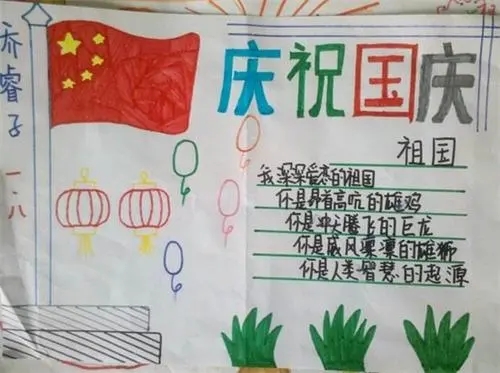 庆祝国庆
乔睿子 一.八
祖国
我深深爱恋的祖国
你是昂首高吭的雄鸡
你是冲天腾飞的巨龙
你是威风凛凛的雄狮
你是人类智慧的起源